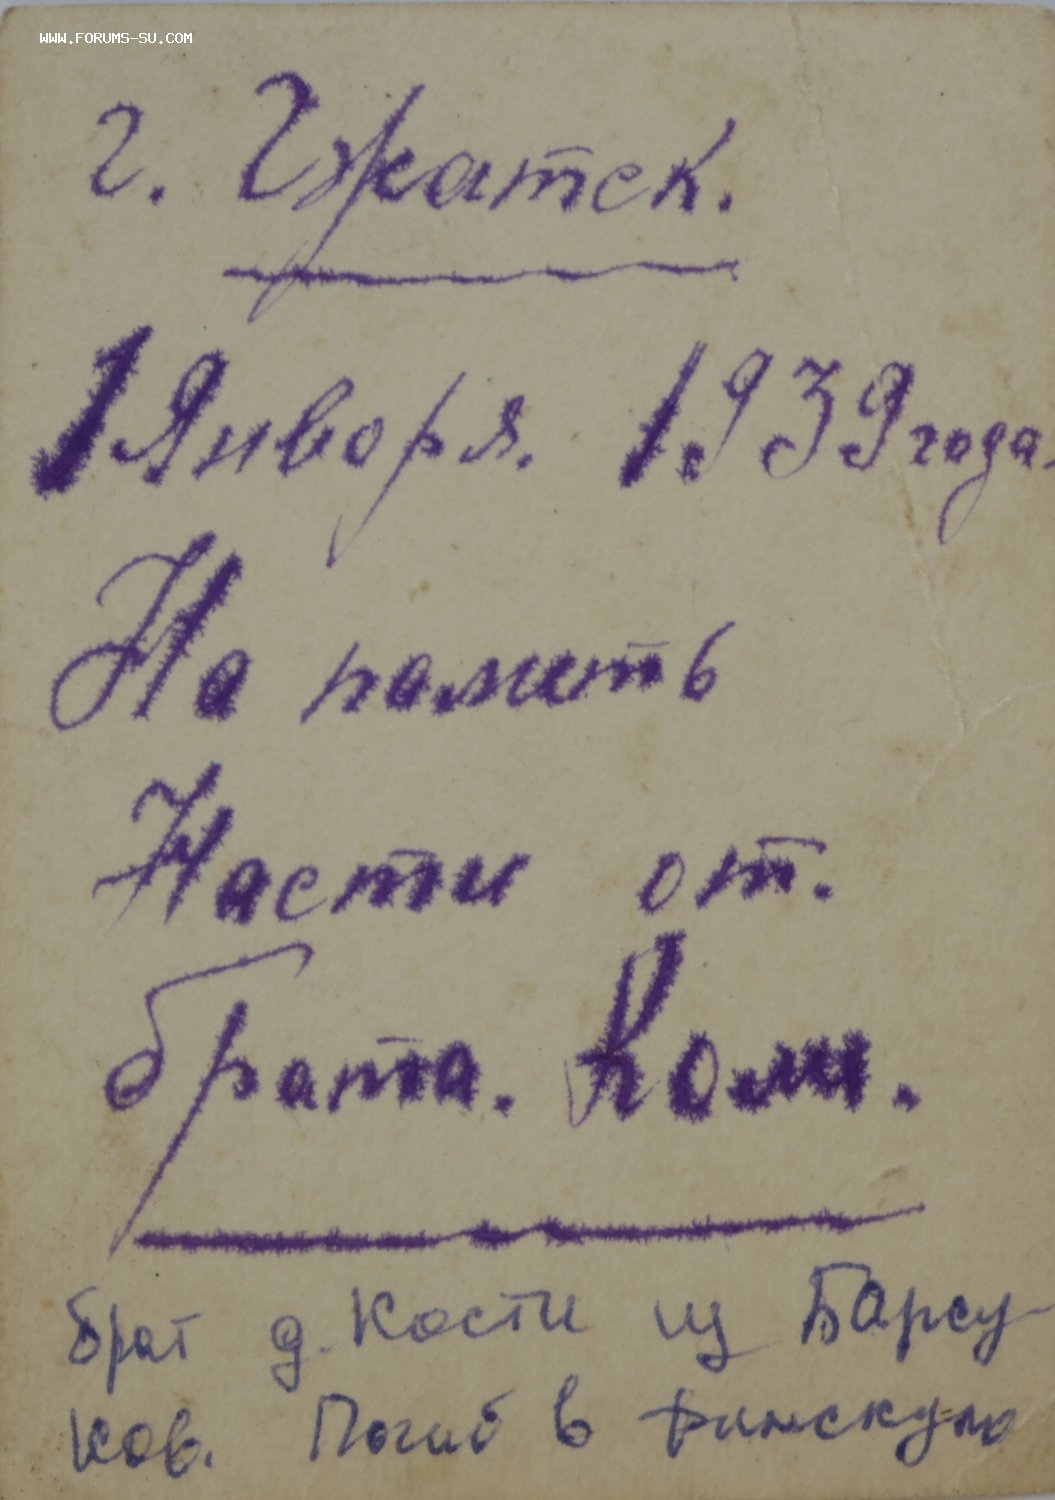 WWW.FORUMS-SU.COM
г. Гжатск.
1 Января. 1939 года.
На память
Насти от.
брата. Коли.
брат д. Кости из Барсу-
ков. Погиб в финскую